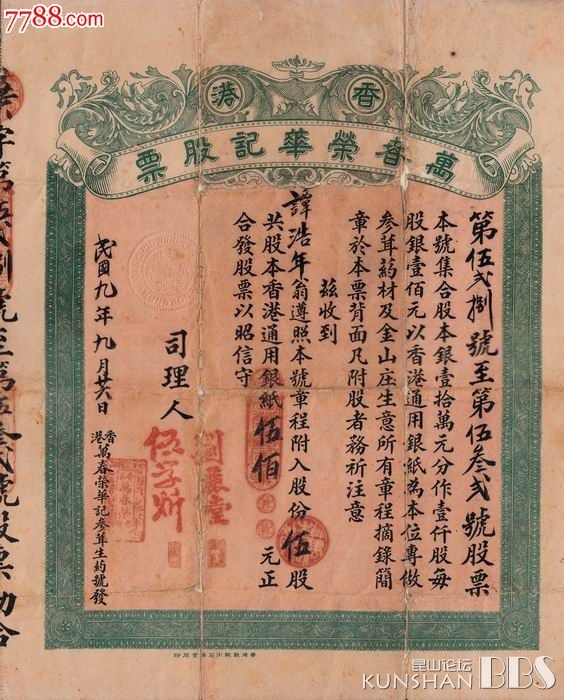 7788.com
香港
萬春榮華記股票
第伍弍捌號至第伍叁弍號股票
本號集合股本銀壹拾萬元分作壹仟股每
股銀壹佰元以香港通用銀紙為本位專做
參茸葯材及金山庄生意所有章程摘錄簡
章於本票背面凡附股者務祈注意
茲收到
譚浩年翁遵照本號章程附入股份伍股
共股本香港通用銀紙伍佰元正
合發股票以昭信守
司理人
民國九年九月廿日
香港萬春榮華記參茸生葯號發
字第伍弍捌號至第伍叁弍號股票
昆山论坛
KUNSHAN BBS